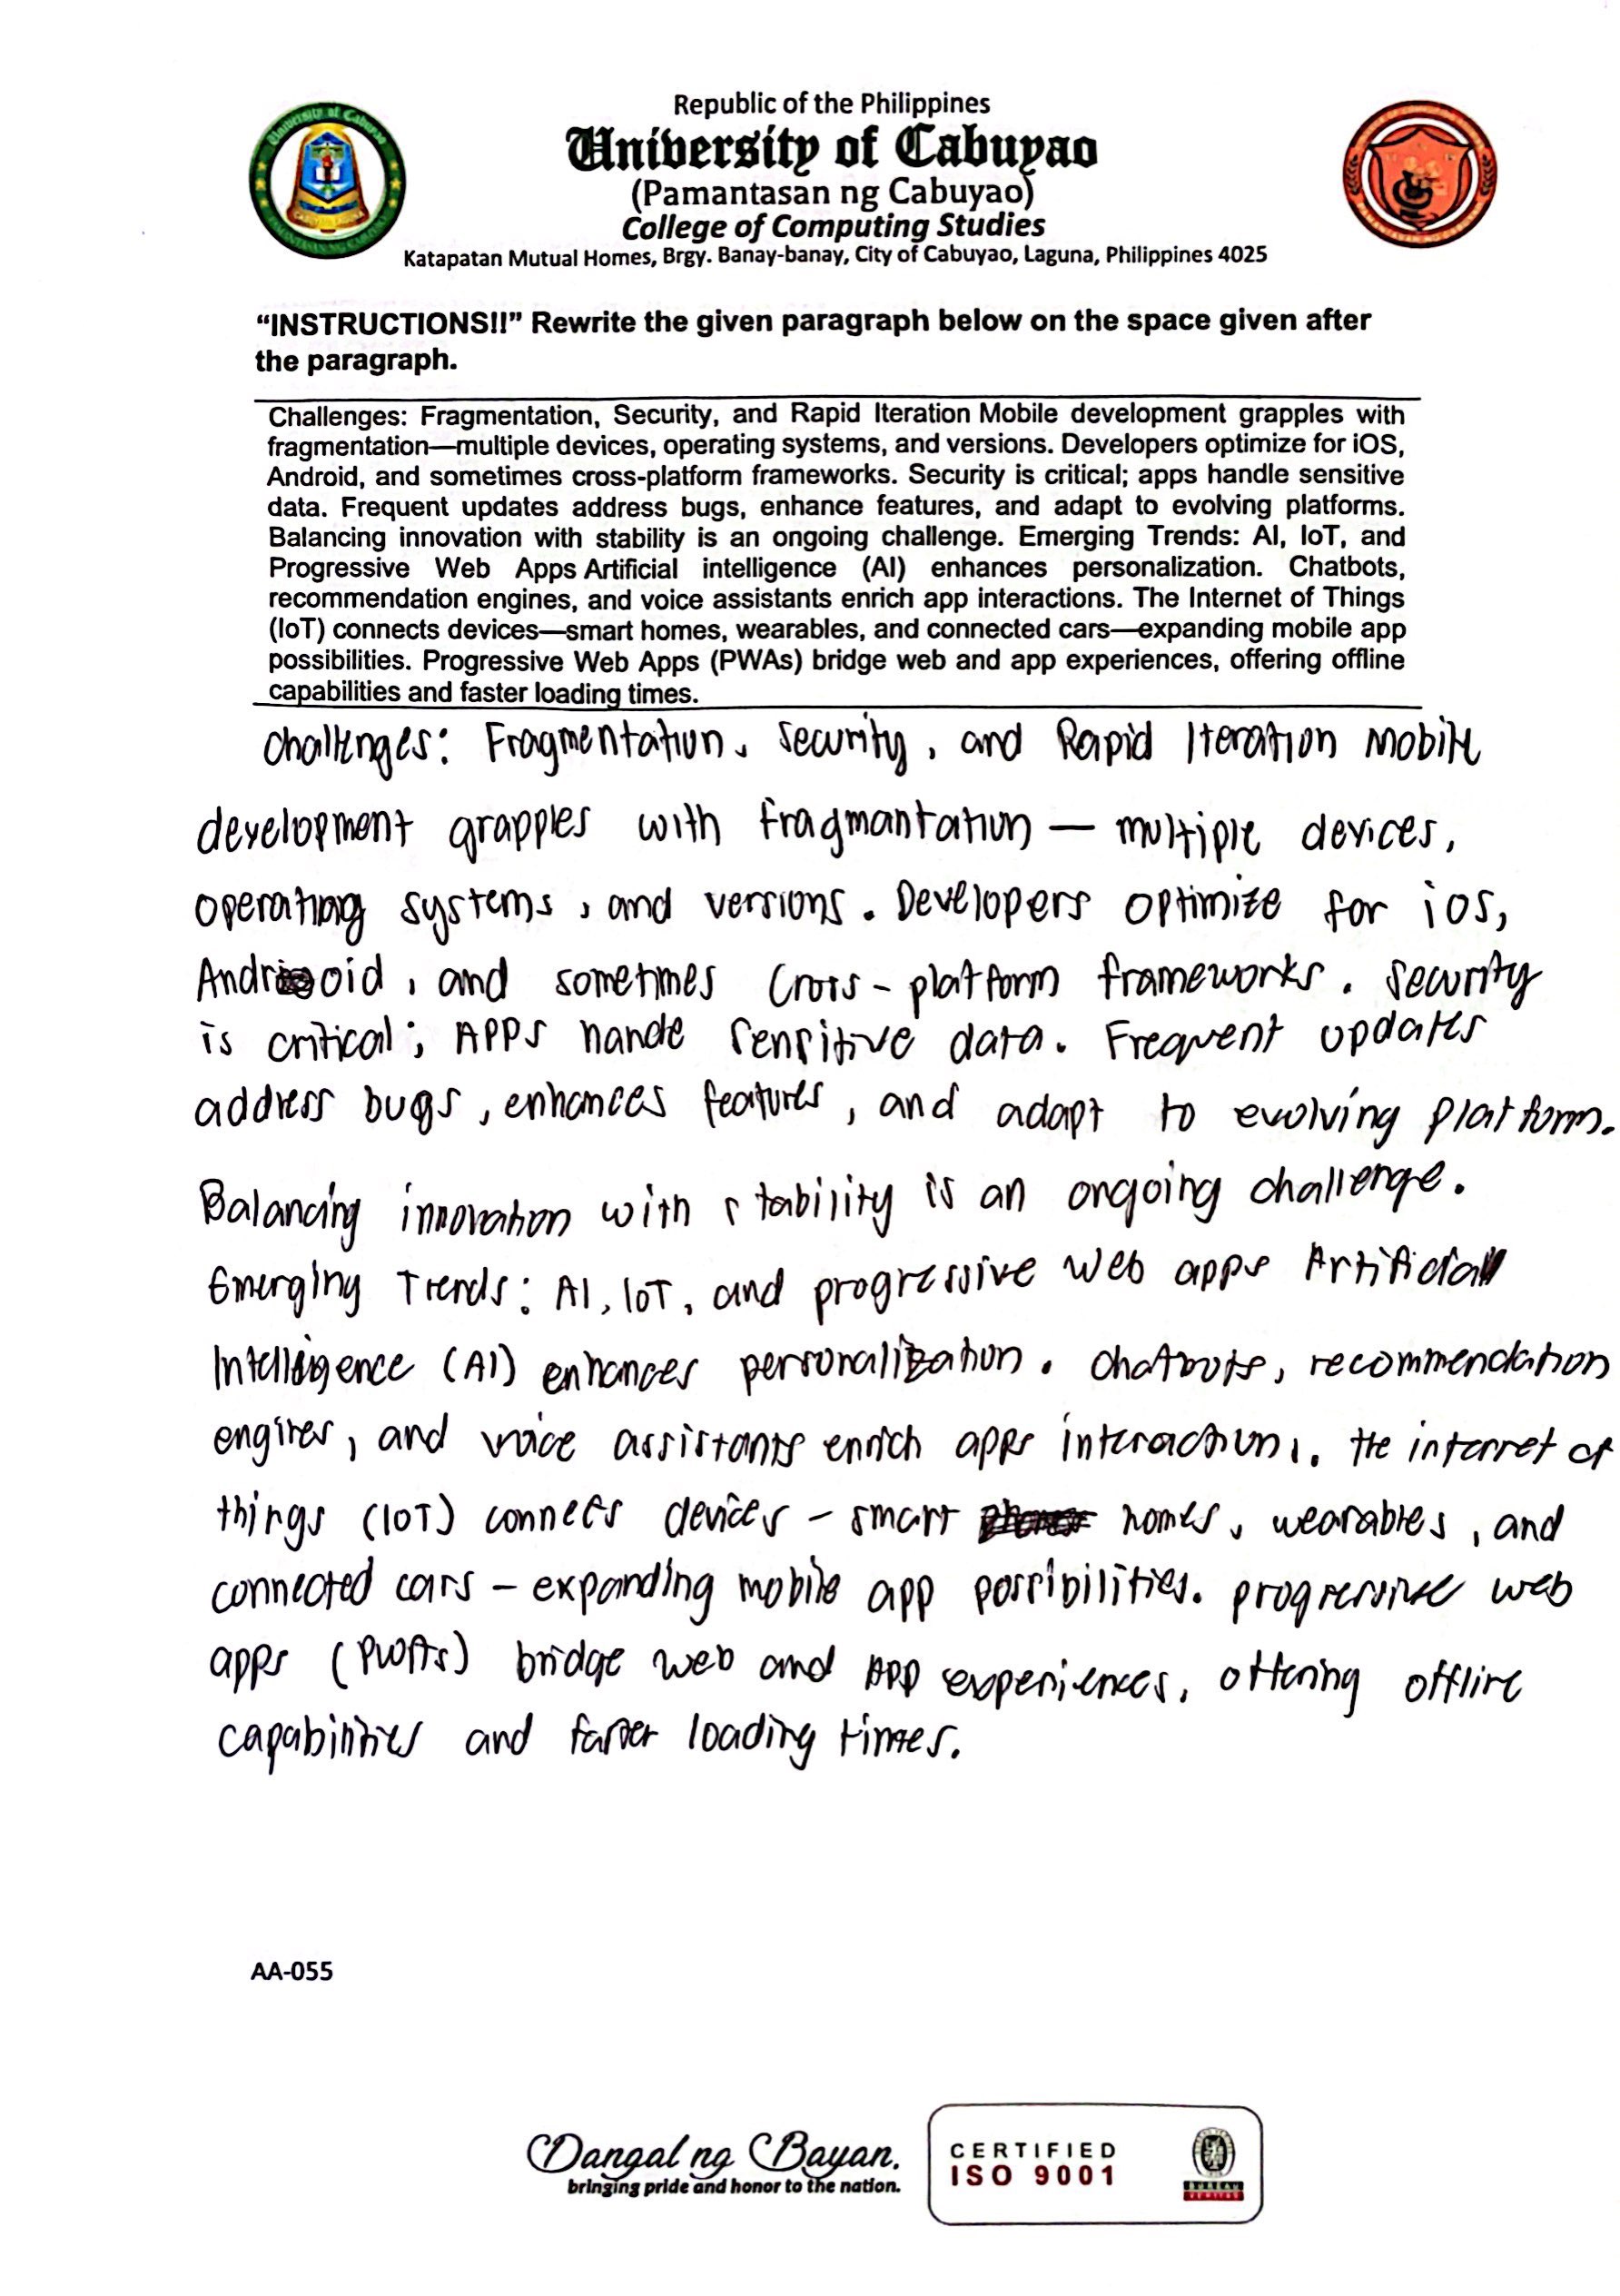 Republic of the Philippines
University of Cabuyao
(Pamantasan ng Cabuyao)
College of Computing Studies
Katapatan Mutual Homes, Brgy. Banay-banay, City of Cabuyao, Laguna, Philippines 4025
“INSTRUCTIONS!!” Rewrite the given paragraph below on the space given after
the paragraph.
Challenges: Fragmentation, Security, and Rapid Iteration Mobile development grapples with
fragmentation—multiple devices, operating systems, and versions. Developers optimize for iOS,
Android, and sometimes cross-platform frameworks. Security is critical; apps handle sensitive
data. Frequent updates address bugs, enhance features, and adapt to evolving platforms.
Balancing innovation with stability is an ongoing challenge. Emerging Trends: AI, IoT, and
Progressive Web Apps Artificial intelligence (AI) enhances personalization. Chatbots,
recommendation engines, and voice assistants enrich app interactions. The Internet of Things
(IoT) connects devices—smart homes, wearables, and connected cars—expanding mobile app
possibilities. Progressive Web Apps (PWAs) bridge web and app experiences, offering offline
capabilities and faster loading times.
challenges: Fragmentation, security, and Rapid Iteration Mobile
development grapples with fragmantation — multiple devices,
operating systems, and versions. Developers optimize for ios,
Android, and sometimes cross-platform frameworks. Security
is critical; APPS hande sensitive data. Frequent updates
address bugs, enhances features, and adapt to evolving platform.
Balancing innovation with stability is an ongoing challenge.
Emerging Trends: AI, IoT, and progressive web apps Artificial
Intelligence (AI) enhances personalization. chatbots, recommendation
engines, and voice assistants enrich apps interactions. the internet of
things (IOT) connects devices - smart homes, wearables, and
connected cars - expanding mobile app possibilities. progressive web
apps (PWAs) bridge web and App experiences, offering offline
capabilities and faster loading times.
AA-055
Dangal ng Bayan.
bringing pride and honor to the nation.
CERTIFIED
ISO 9001
BUREAU
VERITAS